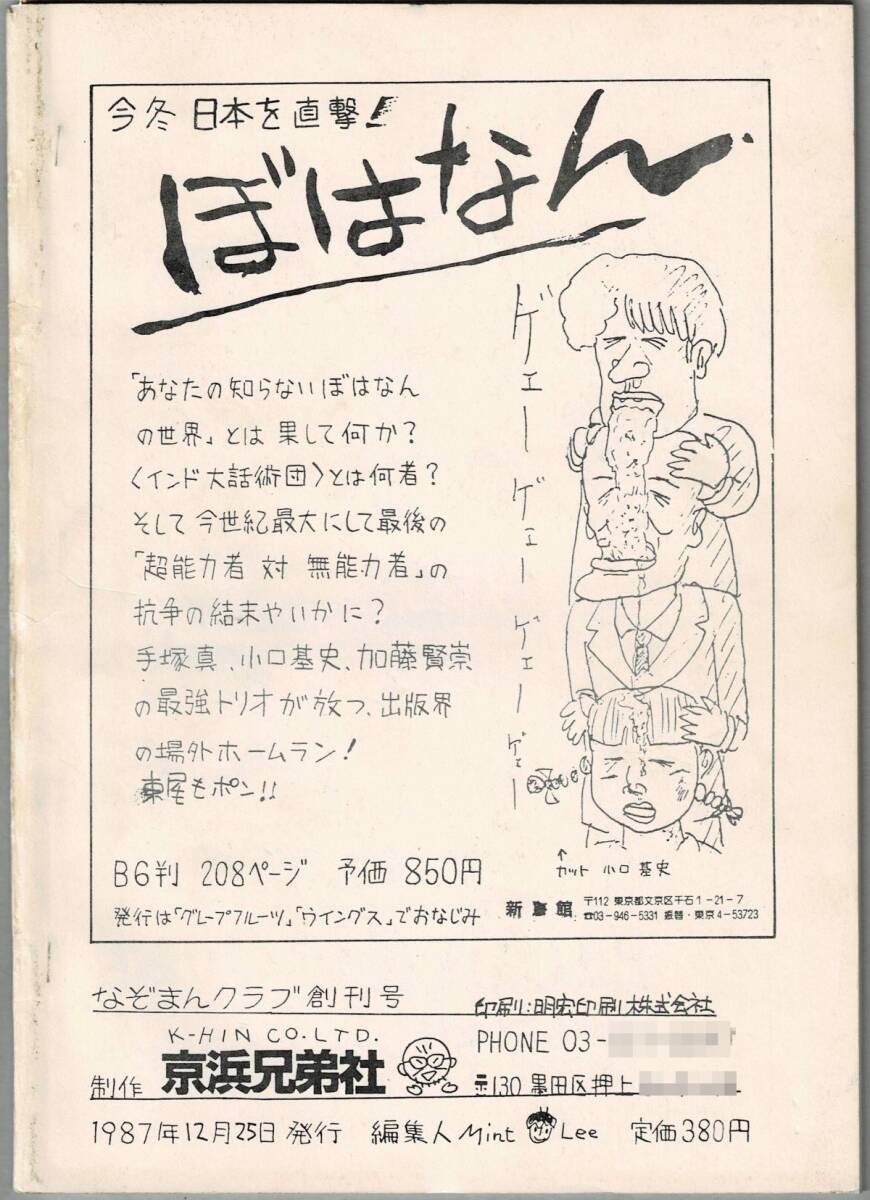 今冬 日本を直撃!
ぼはなん
「あなたの知らないぼはなん
の世界」とは 果して何か?
〈インド大話術団〉とは何者?
そして 今世紀最大にして最後の
「超能力者 対 無能力者」の
抗争の結末やいかに?
手塚真、小口基史、加藤賢崇
の最強トリオが放つ、出版界
の場外ホームラン!
東尾もポン!!
ゲェー ゲェー ゲェー ゲェー
↑
カット 小口 基史
B6判 208ページ 予価 850円
発行は「グレープフルーツ」「ウイングス」でおなじみ
新書館
〒112 東京都文京区千石1-21-7
☎03-946-5331 振替・東京4-53723
なぞまんクラブ創刊号
印刷:明宏印刷株式会社
K-HIN CO.LTD.
制作 京浜兄弟社
PHONE 03-
〒130 墨田区押上
1987年12月25日発行 編集人 Mint Lee 定価380円